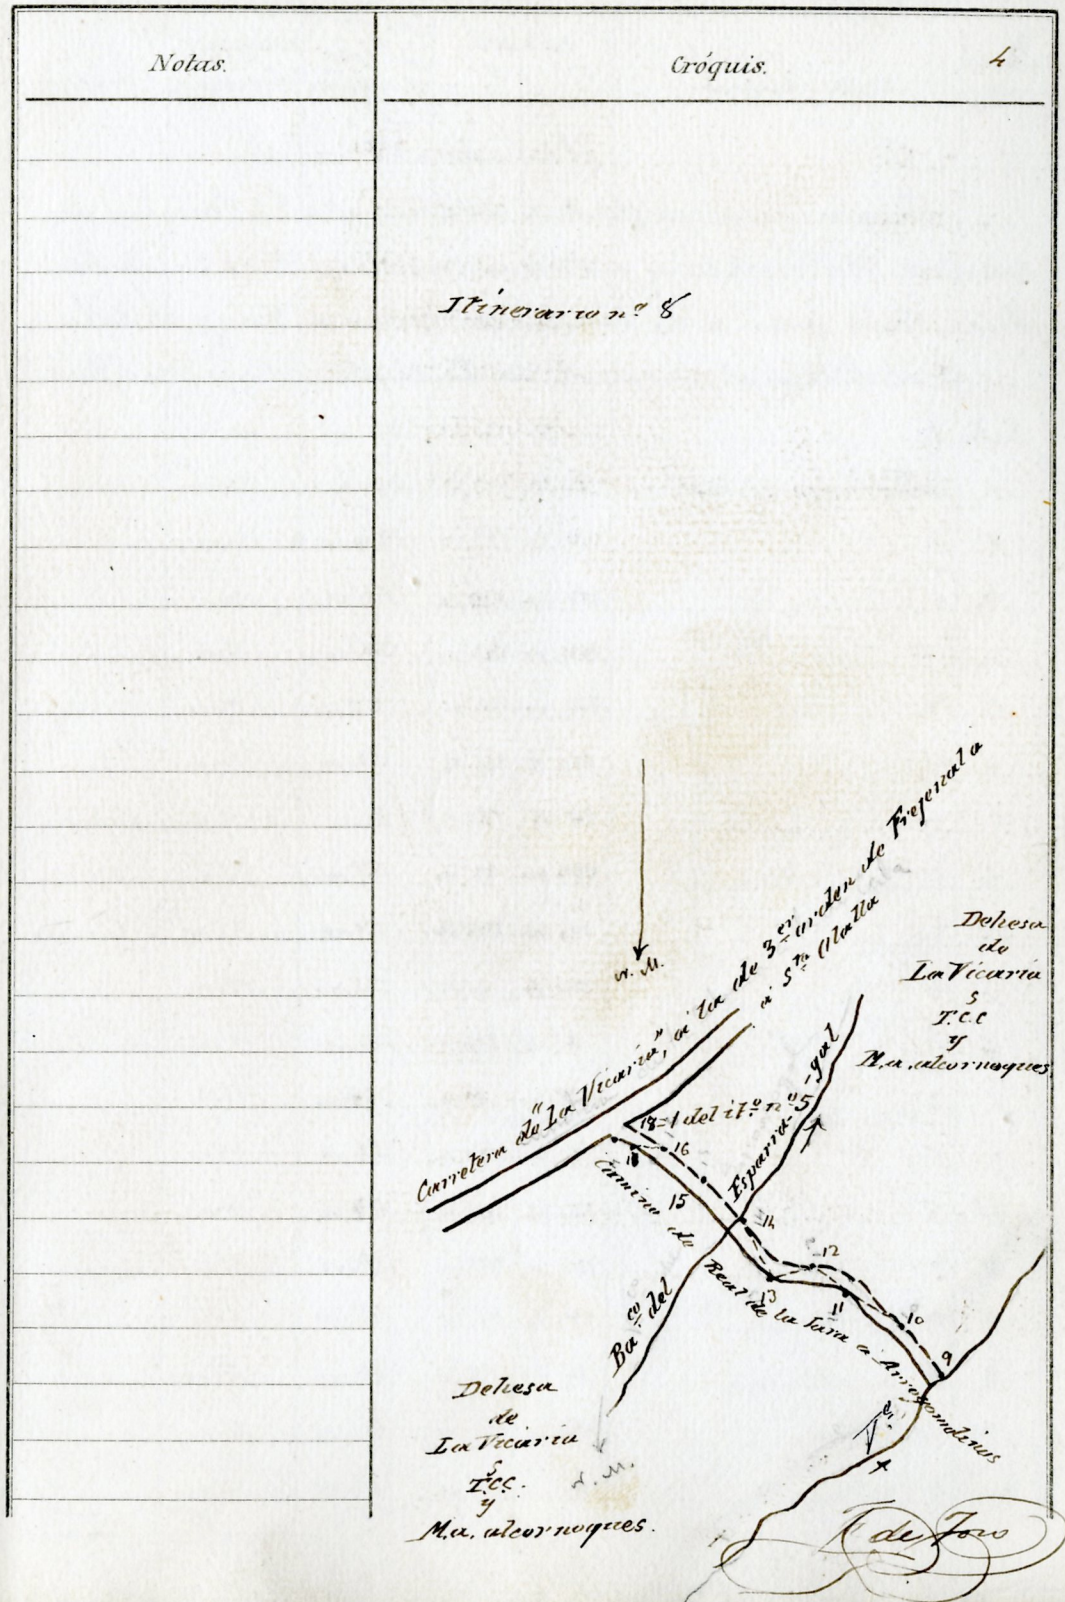 Notas.
Cróquis.
4
Itinerario nº 8
N. M.
Carretera de "La Vicaria", a la de 3er orden de Frejenal a
a Sta Olalla
Dehesa
de
La Vicaria
s
T.C.C
y
M.a. alcornoques
18=1 del itº nº 5
16
15
14
13
12
11
10
9
Camino de Real de la Jara a Arroyomolinos
Baco del Esparra-gal
Dehesa
de
La Vicaria
s
T.C.C.
y
M.a. alcornoques.
N. M.
de Toro